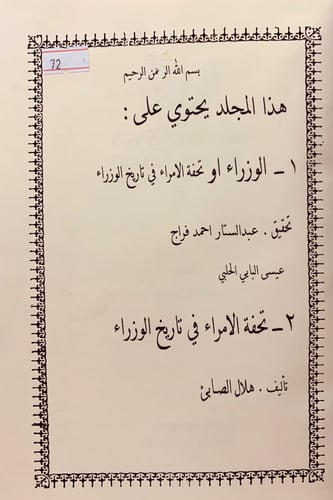 72
بسم الله الرحمن الرحيم
هذا المجلد يحتوي على :
١ ـ الوزراء او تحفة الامراء في تاريخ الوزراء
تحقيق . عبدالستار احمد فراج
عيسى البابي الحلبي
٢ ـ تحفة الامراء في تاريخ الوزراء
تأليف . هلال الصابئ